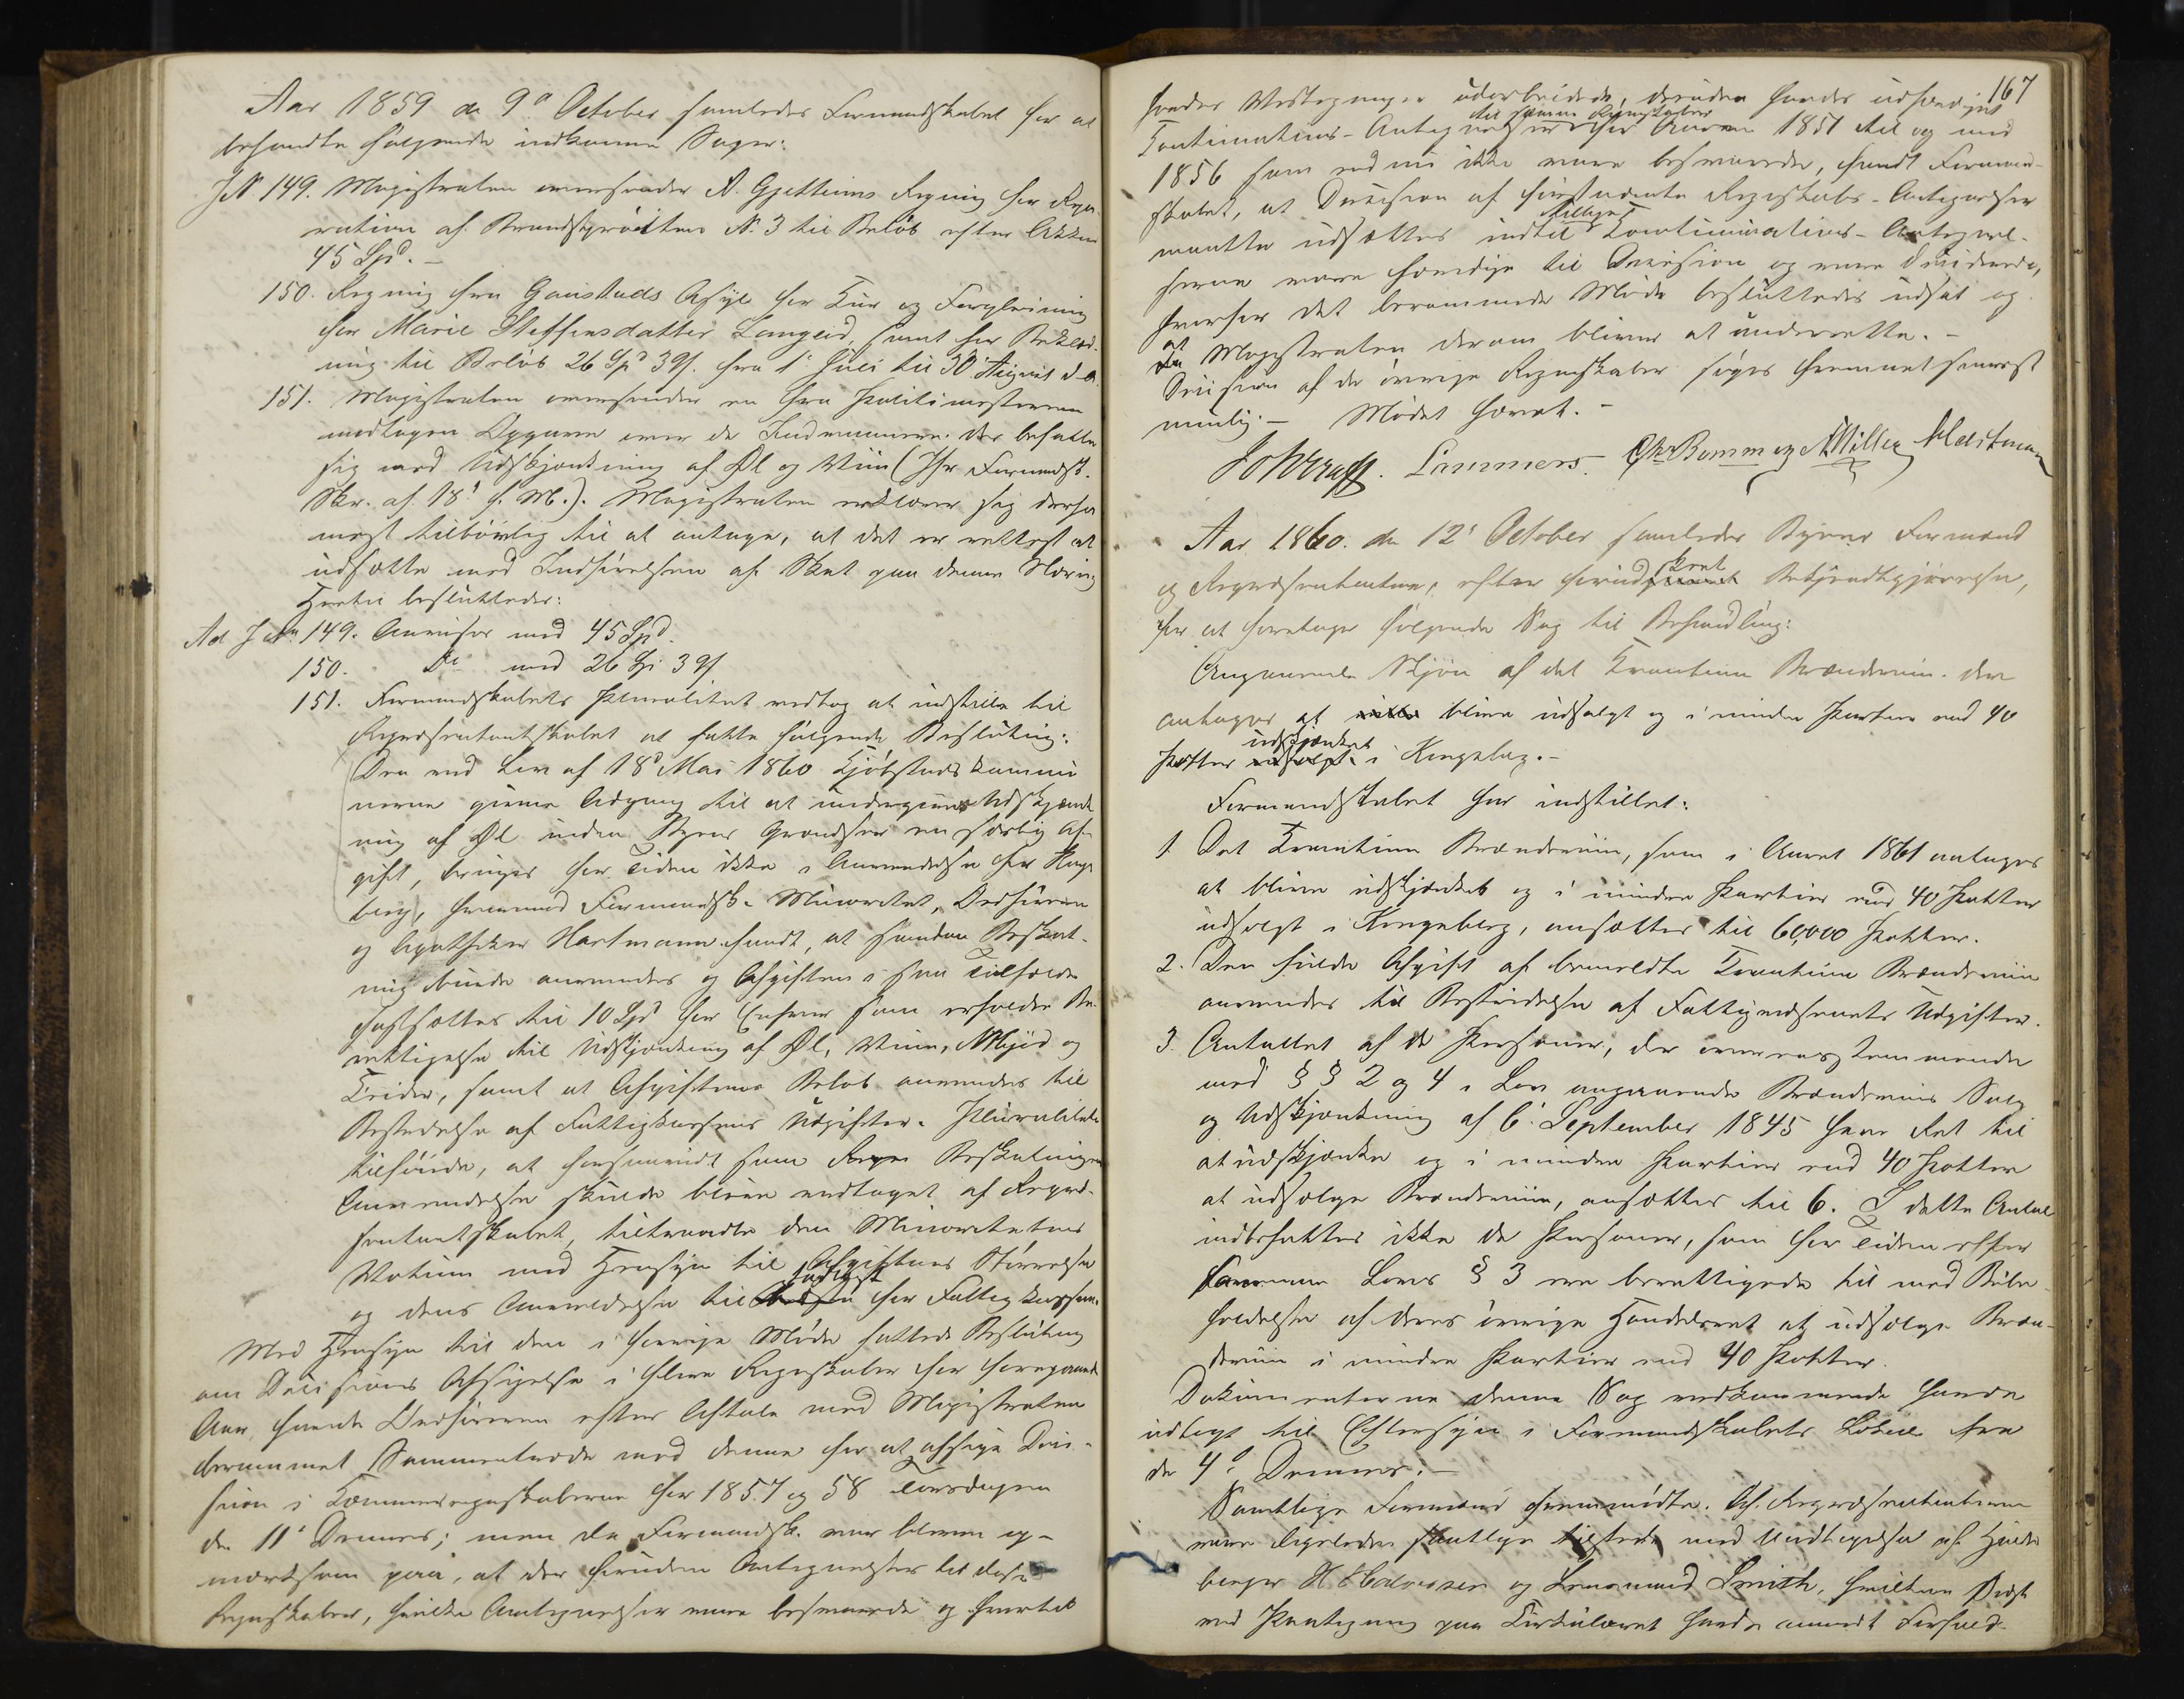 Aar 1859 de 9de October samledes Formandskabet for at
behandle følgende indkomne Sager:
J№ 149. Magistraten oversender A. Gjettums Regning for Repa-
ration af Brandsprøiten № 3 til Beløb efter Akkord
45 Spd. –
150. Regning fra Gaustads Asyl for Kur og Forpleining
for Marie Steffensdatter Langerud, samt for Beklæd-
ning til Beløb 26 Spd 39 s. fra 1ste Juli til 30te August d. A.
151. Magistraten oversender en fra Politimesteren
modtagen Opgave over de Indvaanere der befatte
sig med Udskjænkning af Øl og Viin (Jfr Formandsk.
Skr. af 18de f. M.). Magistraten erklærer sig derhos
mest tilbøielig til at antage, at det er rettest at
udsætte med Indførelsen af Skat paa denne Næring
Hertil besluttedes:
Ad J№ 149. Anvises med 45 Spd.
150. Do med 26 Sp 39 s
151. Formandskabets Pluralitet vedtog at indstille til
Repræsentantskabet at fatte følgende Beslutning:
Den ved Lov af 18de Mai 1860 Kjøbstadskommu-
nerne givne Adgang til at undergive Udskjænk-
ning af Øl inden Byens Grændser en særlig Af-
gift, bringes for Tiden ikke i Anvendelse for Kongs-
berg, hvorimod Formandsk. Minoritet, Ordføreren
og Apotheker Hartmann fandt, at saadan Beskat-
ning burde anvendes og Afgiften i saa Tilfælde
fastsættes til 10 Spd for Enhver som erholder Be-
rettigelse til Udskjænkning af Øl, Viin, Mjød og
Cider, samt at Afgiftens Beløb anvendes til
Bestridelse af Fattigkassens Udgifter. Pluraliteten
tilføiede, at forsaavidt som Beskatningens
Anvendelse skulde blive vedtaget af Repræ-
sentantskabet, tiltraadte den Minoritetens
Votum med Hensyn til Afgiftens Størrelse
og dens Anvendelse til Indtægt for Fattigkassen.
Med Hensyn til den i forrige Møde fattede Beslutning
om Decisions Afsigelse i flere Regnskaber for foregaaende
Aar, havde Ordføreren efter Aftale med Magistraten
berammet Sammentræde med denne for at afsige Deci-
sion i Kæmnerregnskaberne for 1857 og 58 Torsdagen
den 11te Dennes; men da Formandsk. var bleven op-
mærksom paa, at der foruden Antegnelser til disse
Regnskaber, hvilke Antegnelser vare besvarede og hvortil
167
havdes Vedtegninger udarbeidede, desuden havdes udfærdiget
til samme Regnskaber
Continuations-Antegnelser for Aarene 1851 til og med
1856 som end nu ikke vare besvarede, fandt Formand-
skabet, at Decision af førstnævnte Regnskabs-Antegnelser
tillige
maatte udsættes indtil Continuations-Antegnel-
serne vare færdige til Decision og vare deciderede,
hvorfor det berammede Møde besluttedes udsat og
at
Magistraten derom bliver at underrette. –
Decision af de øvrige Regnskaber søges fremmet snarest
mulig. – Mødet hævet. –
Joh Kraft. Lammers. Chr. Bommen N Müller Hartmann
Aar 1860. den 12te October samledes Byens Formænd
og Repræsentanter, efter forud skeet Bekjendtgjørelse,
for at foretage følgende Sag til Behandling:
Angaaende Skjøn af det Kvantum Brændeviin der
antages at blive udsolgt og i mindre Partier end 40
udskjænket
Potter i Kongsberg. –
Formandskabet har indstillet:
1. Det Kvantum Brændeviin, som i Aaret 1861 antages
at blive udskjænket og i mindre Partier end 40 Potter
udsolgt i Kongsberg, ansættes til 60,000 Potter.
2. Den fulde Afgift af bemeldte Kvantum Brændeviin
anvendes til Bestridelse af Fattigvæsenets Udgifter.
3. Antallet af de Personer, der overensstemmende
med § § 2 og 4 i Lov angaaende Brændeviins Salg
og Udskjænkning af 6te September 1845 have Ret til
at udskjænke og i mindre Partier end 40 Potter
at udsælge Brændeviin, ansættes til 6. I dette Antal
indbefattes ikke de Personer, som for Tiden efter
samme Lovs § 3 ere berettigede til med Beibe-
holdelse af deres øvrige Handelsret at udsælge Bræn-
deviin i mindre Partier end 40 Potter.
Dokumenterne denne Sag vedkommende havde
udlagt til Eftersyn i Formandskabets Lokale fra
de 4de Dennes. –
Samtlige Formænd fremmødte. Af Repræsentanterne
vare ligeledes samtlige tilstede med Undtagelse af
og Lensmand Smith, hvilken Sidste
ved Paategning paa Cirkulæret havde anmeldt Forfald.